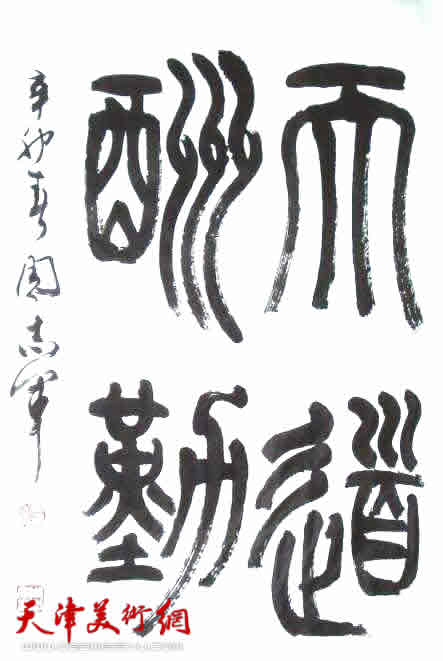 天道
酬勤
辛卯春周志军
天津美術網